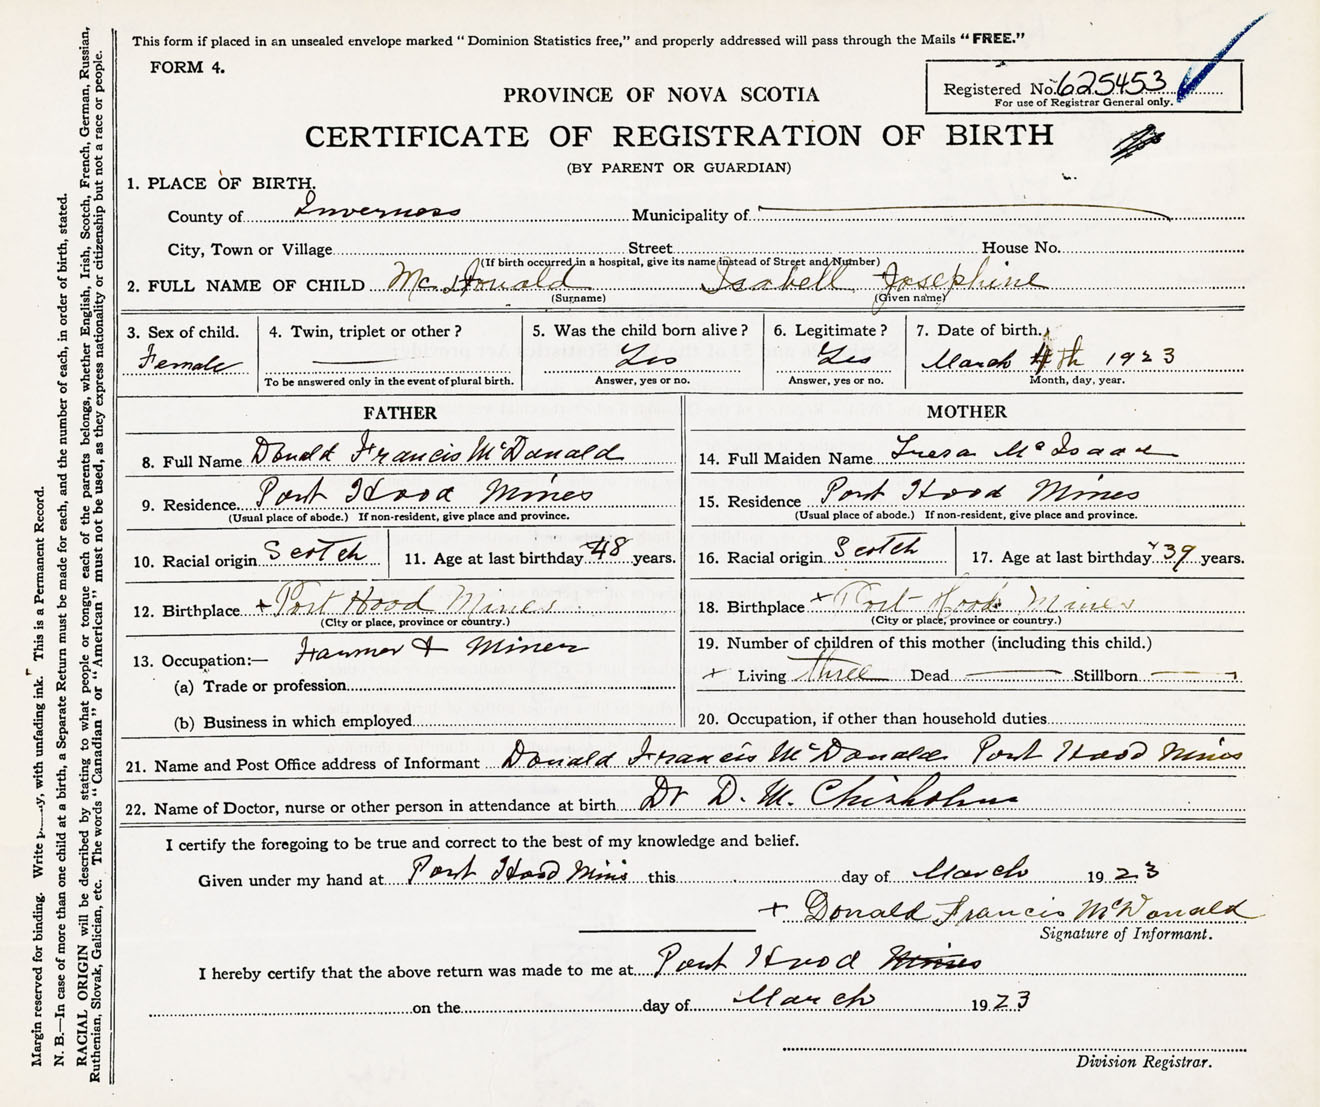 This form if placed in an unsealed envelope marked "Dominion Statistics free," and properly addressed will pass through the Mails "FREE."
FORM 4.
Registered No. 625453
For use of Registrar General only.
PROVINCE OF NOVA SCOTIA
CERTIFICATE OF REGISTRATION OF BIRTH
(BY PARENT OR GUARDIAN)
1. PLACE OF BIRTH.
County of Inverness Municipality of
City, Town or Village Street House No.
(If birth occurred in a hospital, give its name instead of Street and Number)
2. FULL NAME OF CHILD McDonald Isabell Josephine
(Surname) (Given name)
3. Sex of child. Female
4. Twin, triplet or other?
To be answered only in the event of plural birth.
5. Was the child born alive? Yes
Answer, yes or no.
6. Legitimate? Yes
Answer, yes or no.
7. Date of birth. March 4th 1923
Month, day, year.
FATHER
8. Full Name Donald Francis McDonald
9. Residence Port Hood Mines
(Usual place of abode.) If non-resident, give place and province.
10. Racial origin Scotch 11. Age at last birthday 48 years.
12. Birthplace + Port Hood Mines
(City or place, province or country.)
13. Occupation:— Farmer & Miner
(a) Trade or profession
(b) Business in which employed
MOTHER
14. Full Maiden Name Tresa McIsaac
15. Residence Port Hood Mines
(Usual place of abode.) If non-resident, give place and province.
16. Racial origin Scotch 17. Age at last birthday 39 years.
18. Birthplace + Port Hood Mines
(City or place, province or country.)
19. Number of children of this mother (including this child.)
+ Living three Dead Stillborn
20. Occupation, if other than household duties
21. Name and Post Office address of Informant Donald Francis McDonald Port Hood Mines
22. Name of Doctor, nurse or other person in attendance at birth Dr D. M. Chisholm
I certify the foregoing to be true and correct to the best of my knowledge and belief.
Given under my hand at Port Hood Mines this day of March 1923
+ Donald Francis McDonald
Signature of Informant.
I hereby certify that the above return was made to me at Port Hood Mines
on the day of March 1923
Division Registrar.
Margin reserved for binding. Write with unfading ink. This is a Permanent Record.
N. B.—In case of more than one child at a birth, a Separate Return must be made for each, and the number of each, in order of birth, stated.
RACIAL ORIGIN will be described by stating to what people or tongue each of the parents belongs, whether English, Irish, Scotch, French, German, Russian,
Ruthenian, Slovak, Galician, etc. The words "Canadian" or "American" must not be used, as they express nationality or citizenship but not a race or people.